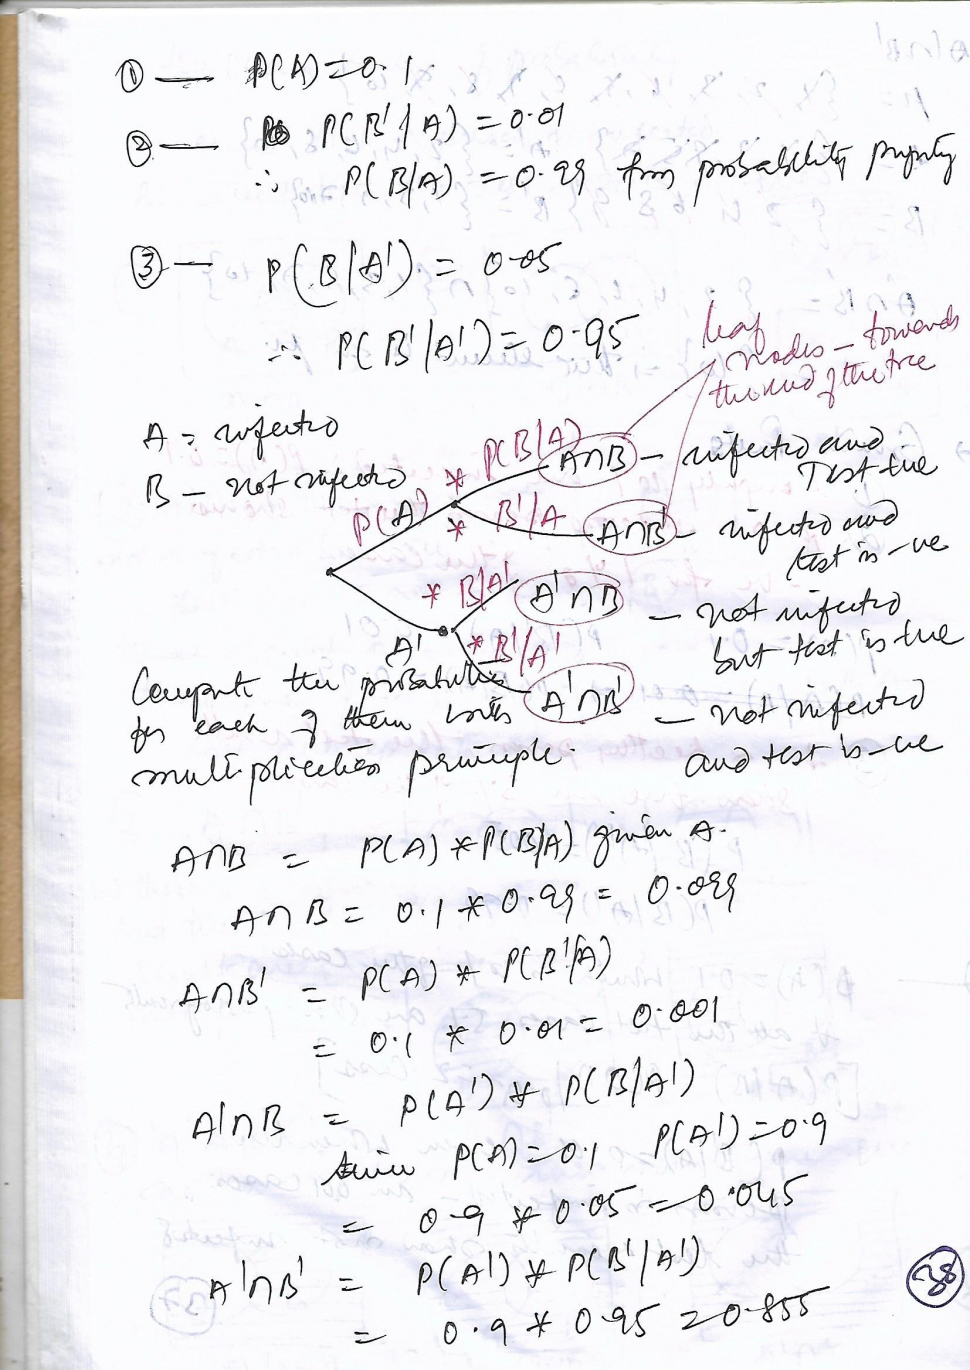 ① — P(A) = 0.1
② — P(B'/A) = 0.01
∴ P(B/A) = 0.99 from probability property
③ — P(B/A') = 0.05
∴ P(B'/A') = 0.95
leaf
nodes - towards
the end of the tree
A = infected
B - not infected
P(A) * P(B/A) A∩B - infected and
Test +ve
* B'/A A∩B' - infected and
test is -ve
* B/A' A'∩B - not infected
but test is +ve
A' * B'/A' A'∩B' - not infected
and test is -ve
Compute the probabilities
for each of them with
multiplication principle.
A∩B = P(A) * P(B/A) given A.
A∩B = 0.1 * 0.99 = 0.099
A∩B' = P(A) * P(B'/A)
= 0.1 * 0.01 = 0.001
A'∩B = P(A') * P(B/A')
since P(A) = 0.1 P(A') = 0.9
= 0.9 * 0.05 = 0.045
A'∩B' = P(A') * P(B'/A')
= 0.9 * 0.95 = 0.855
38